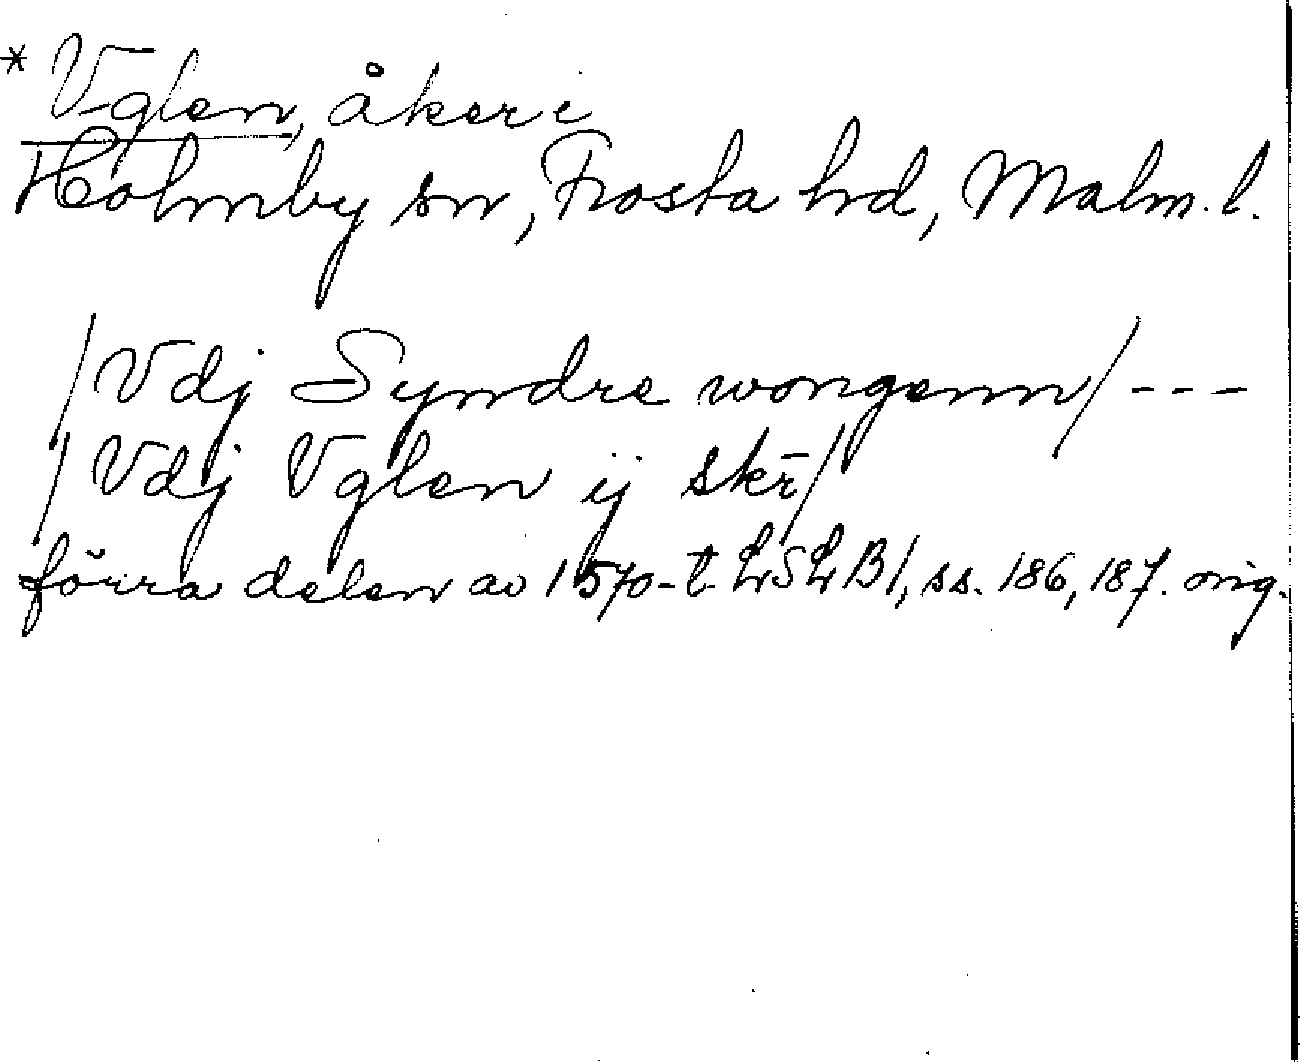 * Vglen, åker i
Holmby sn, Frosta hd, Malm. l.
/Vdj Syndre wongenn/ ---
/Vdj Vglen ij skr̄/
förra delen av 1570-t. LSLB1, ss. 186, 187. orig.